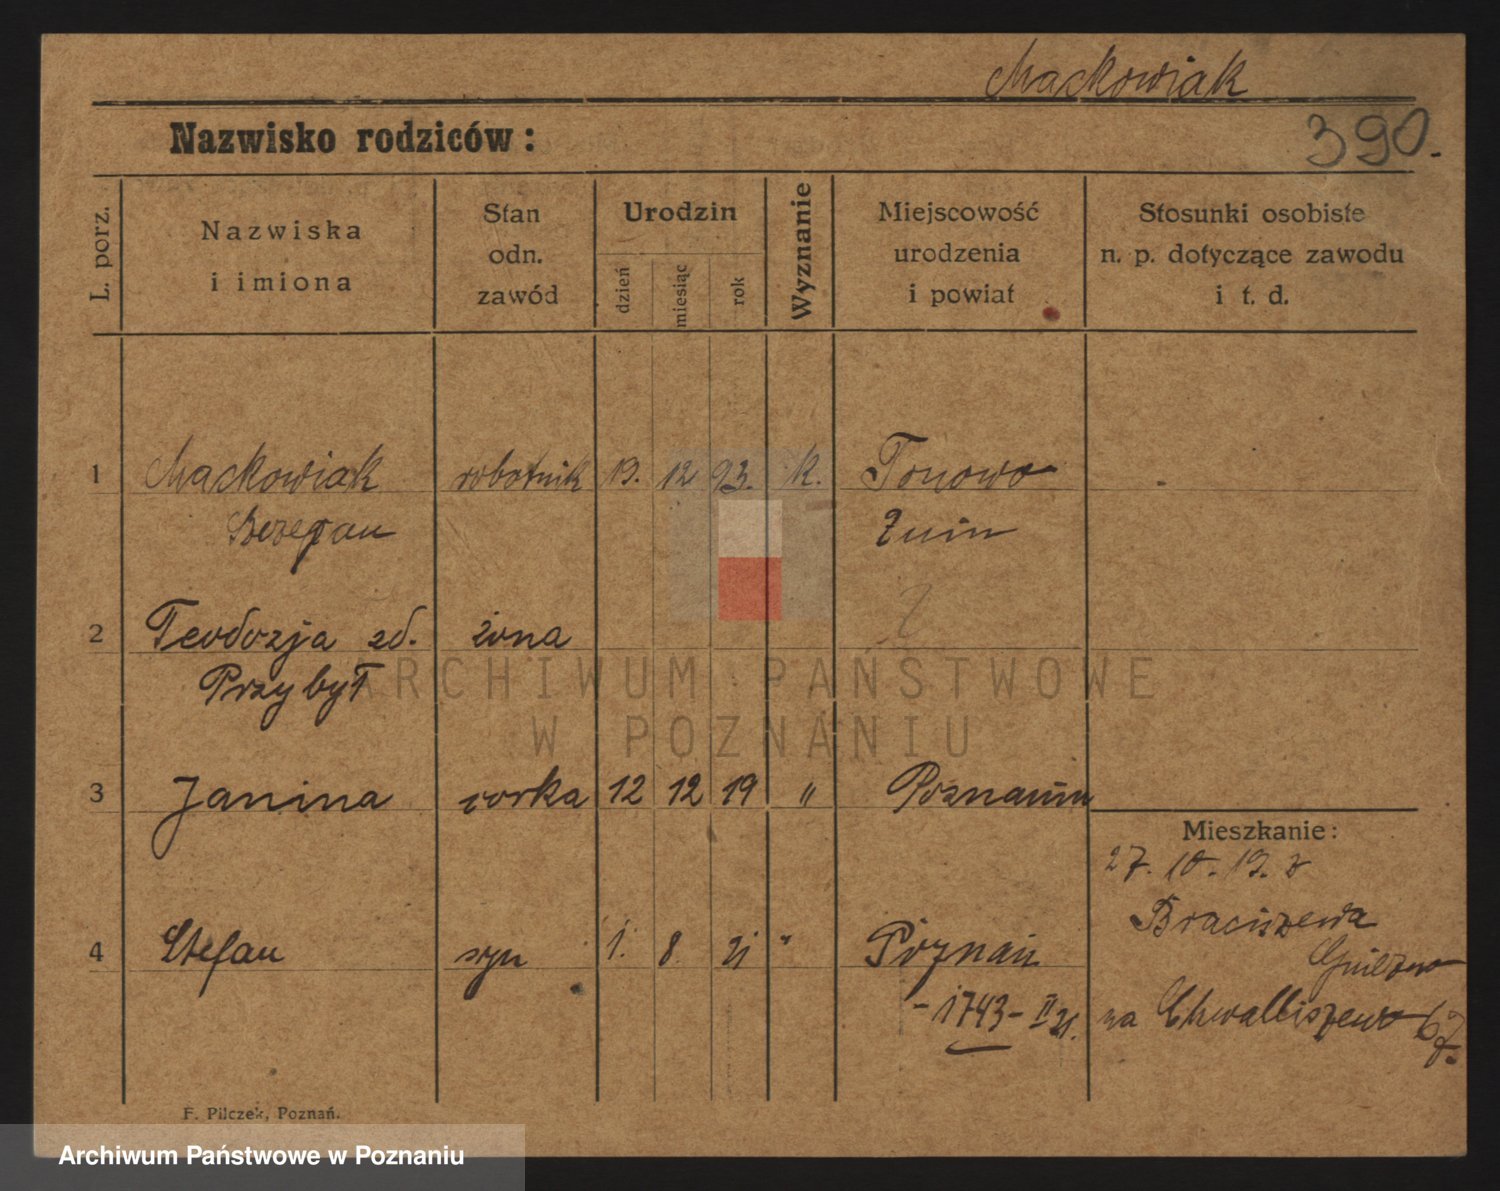 Mackowiak
390.
Nazwisko rodziców:
L. porz.
Nazwiska
i imiona
Stan
odn.
zawód
Urodzin
dzień
miesiąc
rok
Wyznanie
Miejscowość
urodzenia
i powiat
Stosunki osobiste
n. p. dotyczące zawodu
i t. d.
1 Mackowiak robotnik 13. 12 93. k. Tonowo
Żnin
2 Teodozja zd. żona
Przybył
3 Janina corka 12 12 19 " Poznaniu
Mieszkanie:
27. 10. 19. z
4 Stefan syn 1. 8. 21 " Poznań
Gniezno
-1743- II 21.
na Chwaliszewo 67.
F. Pilczek, Poznań.
ARCHIWUM PAŃSTWOWE
W POZNANIU
Archiwum Państwowe w Poznaniu